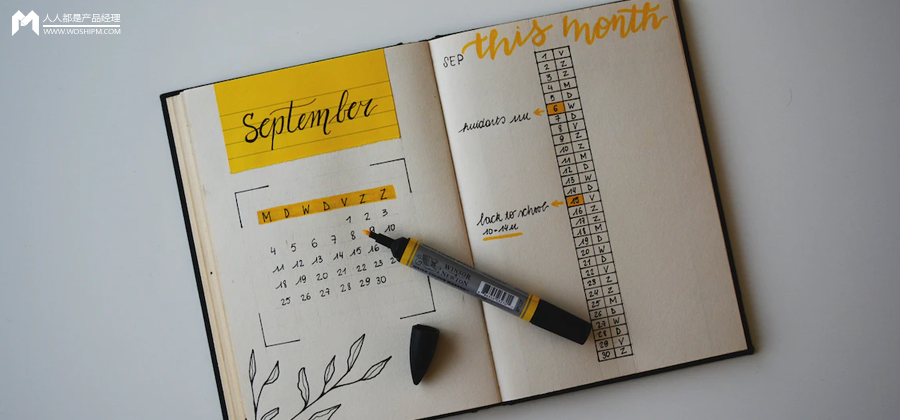 人人都是产品经理
WWW.WOSHIPM.COM
September
M D W D V Z Z
1 2 3
4 5 6 7 8 9 10
11 12 13 14 15 16
18 19 20 21 22 23 2
25 26 27 28 29 30
this month
SEP
1 V
2 Z
3 Z
4 M
5 D
6 W
7 D
8 V
9 Z
10 Z
11 M
12 D
13 W
14 D
15 V
16 Z
17 Z
18 M
19 D
20 W
21 D
22 V
23 Z
24 Z
25 M
26 D
28 D
29 V
30 Z
back to school
10-14u